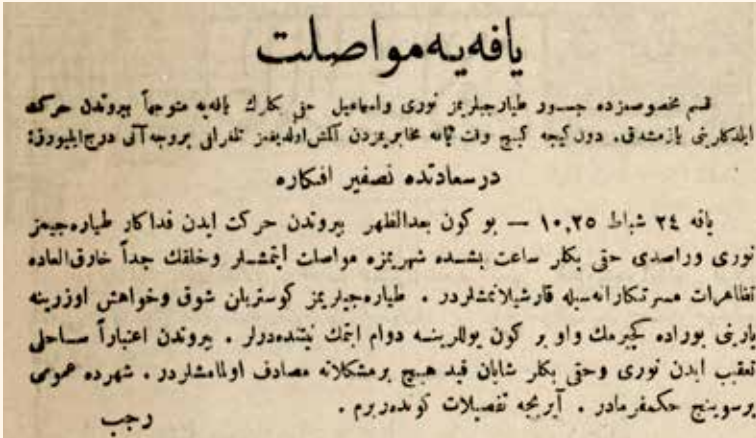 يافه‌يه مواصلت
قسم مخصوصمزده جسور طياره‌جيلريمز نورى واسماعيل حقى بكلرك يافه‌يه متوجهاً بيروتدن حركت
ايلدكارينى يازمشدق. دون كيجه كيچ وقت يافه مخابريمزدن آلمش اولديغمز تلغرافى بروجه آتى درج ايليورز:
درسعادتده تصفير افكاره
يافه ٢٤ شباط ١٠,٢٥ — بو كون بعدالظهر بيروتدن حركت ايدن فداكار طياره‌جيمز
نورى وراصدى حقى بكلر ساعت بشده شهريمزه مواصلت ايتمشلر وخلقك جداً خارق‌العاده
تظاهرات مسرتكارانه‌سيله قارشيلانمشلردر . طياره‌جيلريمز كوستريلان شوق وخواهش اوزرينه
يارينى بوراده كچيرمك واو بر كون يوللرينه دوام ايتمك نيتنده‌درلر . بيروتدن اعتباراً ساحلى
تعقيب ايدن نورى وحقى بكلر شايان قيد هيچ برمشكلاته مصادف اولمامشلردر . شهرده عمومى
برسوينچ حكمفرمادر . آيريجه تفصيلات كوندەريرم .
رجب